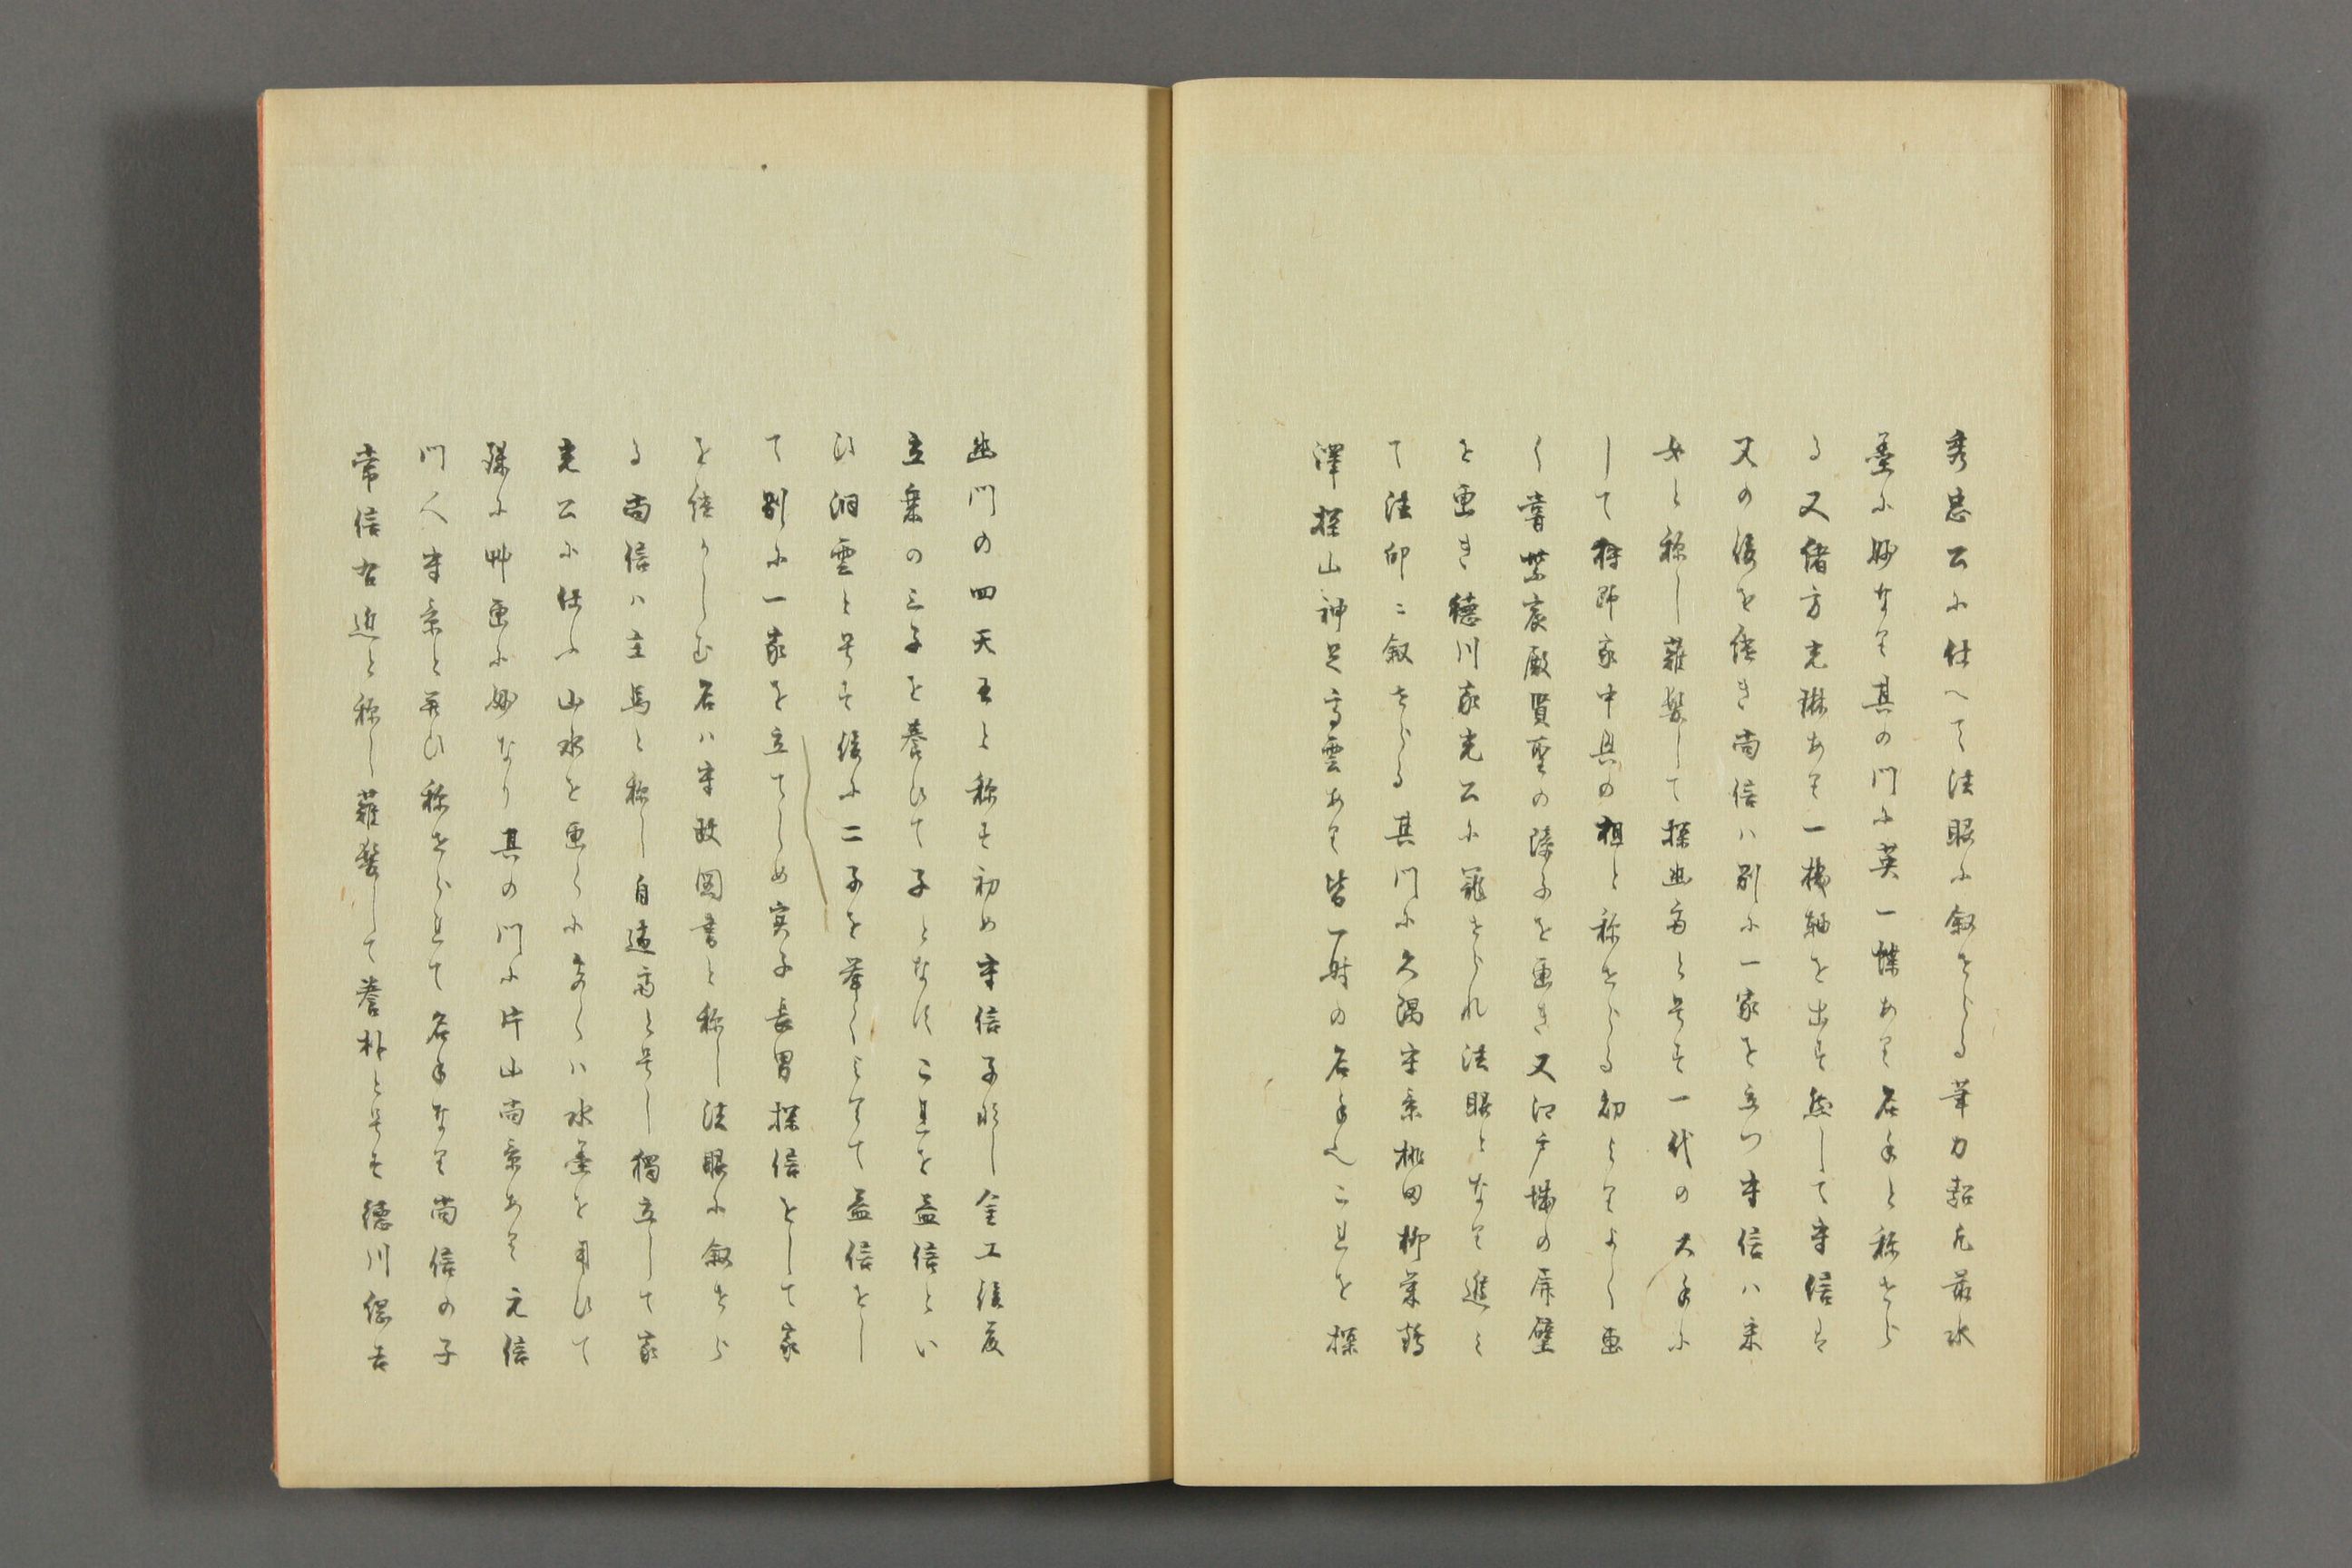 秀忠公ふ仕へて法眼ふ叙せらる筆力超凡最水
墨ふ妙なり其の門ふ英一蝶あり名手と称せら
る又緒方光琳あり一機軸を出す然して守信は
父の後を継き尚信ハ別ふ一家を立つ守信ハ采
女と称し薙髪して探幽斎と号す一代の大手ふ
して狩野家中興の祖と称せらる初よりよく画
く嘗紫宸殿賢聖の障子を画き又江戸城の屏壁
を画き徳川家光公ふ寵せられ法眼となり進ミ
て法印ニ叙せらる其門ふ久隅守景桃田柳栄鶴
澤探山神足高雲あり皆一時の名手也これを探
幽門の四天王と称す初め守信子无し金工後藤
立乗の三子を養ひて子となすこれを益信とい
ひ洞雲と号す後ふ二子を挙くよりて益信をし
て別ふ一家を立てしめ実子長男探信をして家
を継かしむ名ハ守政図書と称し法眼ふ叙せら
る尚信ハ主馬と称し自適斎と号し独立して家
光公ふ仕ふ山水を画くふ多くハ水墨を用ひて
殊ふ艸画ふ妙なり其の門ふ片山尚景あり元信
門人守景と并ひ称せられて名手なり尚信の子
常信右近と称し薙髪して養朴と号す徳川綱吉